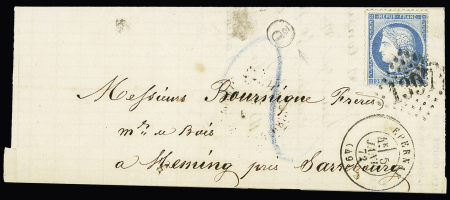 REPUB. FRANC.
OR
Messieurs Bournique Frères
mds de Bois
à Heming près Sarrebourg
EPERNAY
5
JANV.
72
(49)